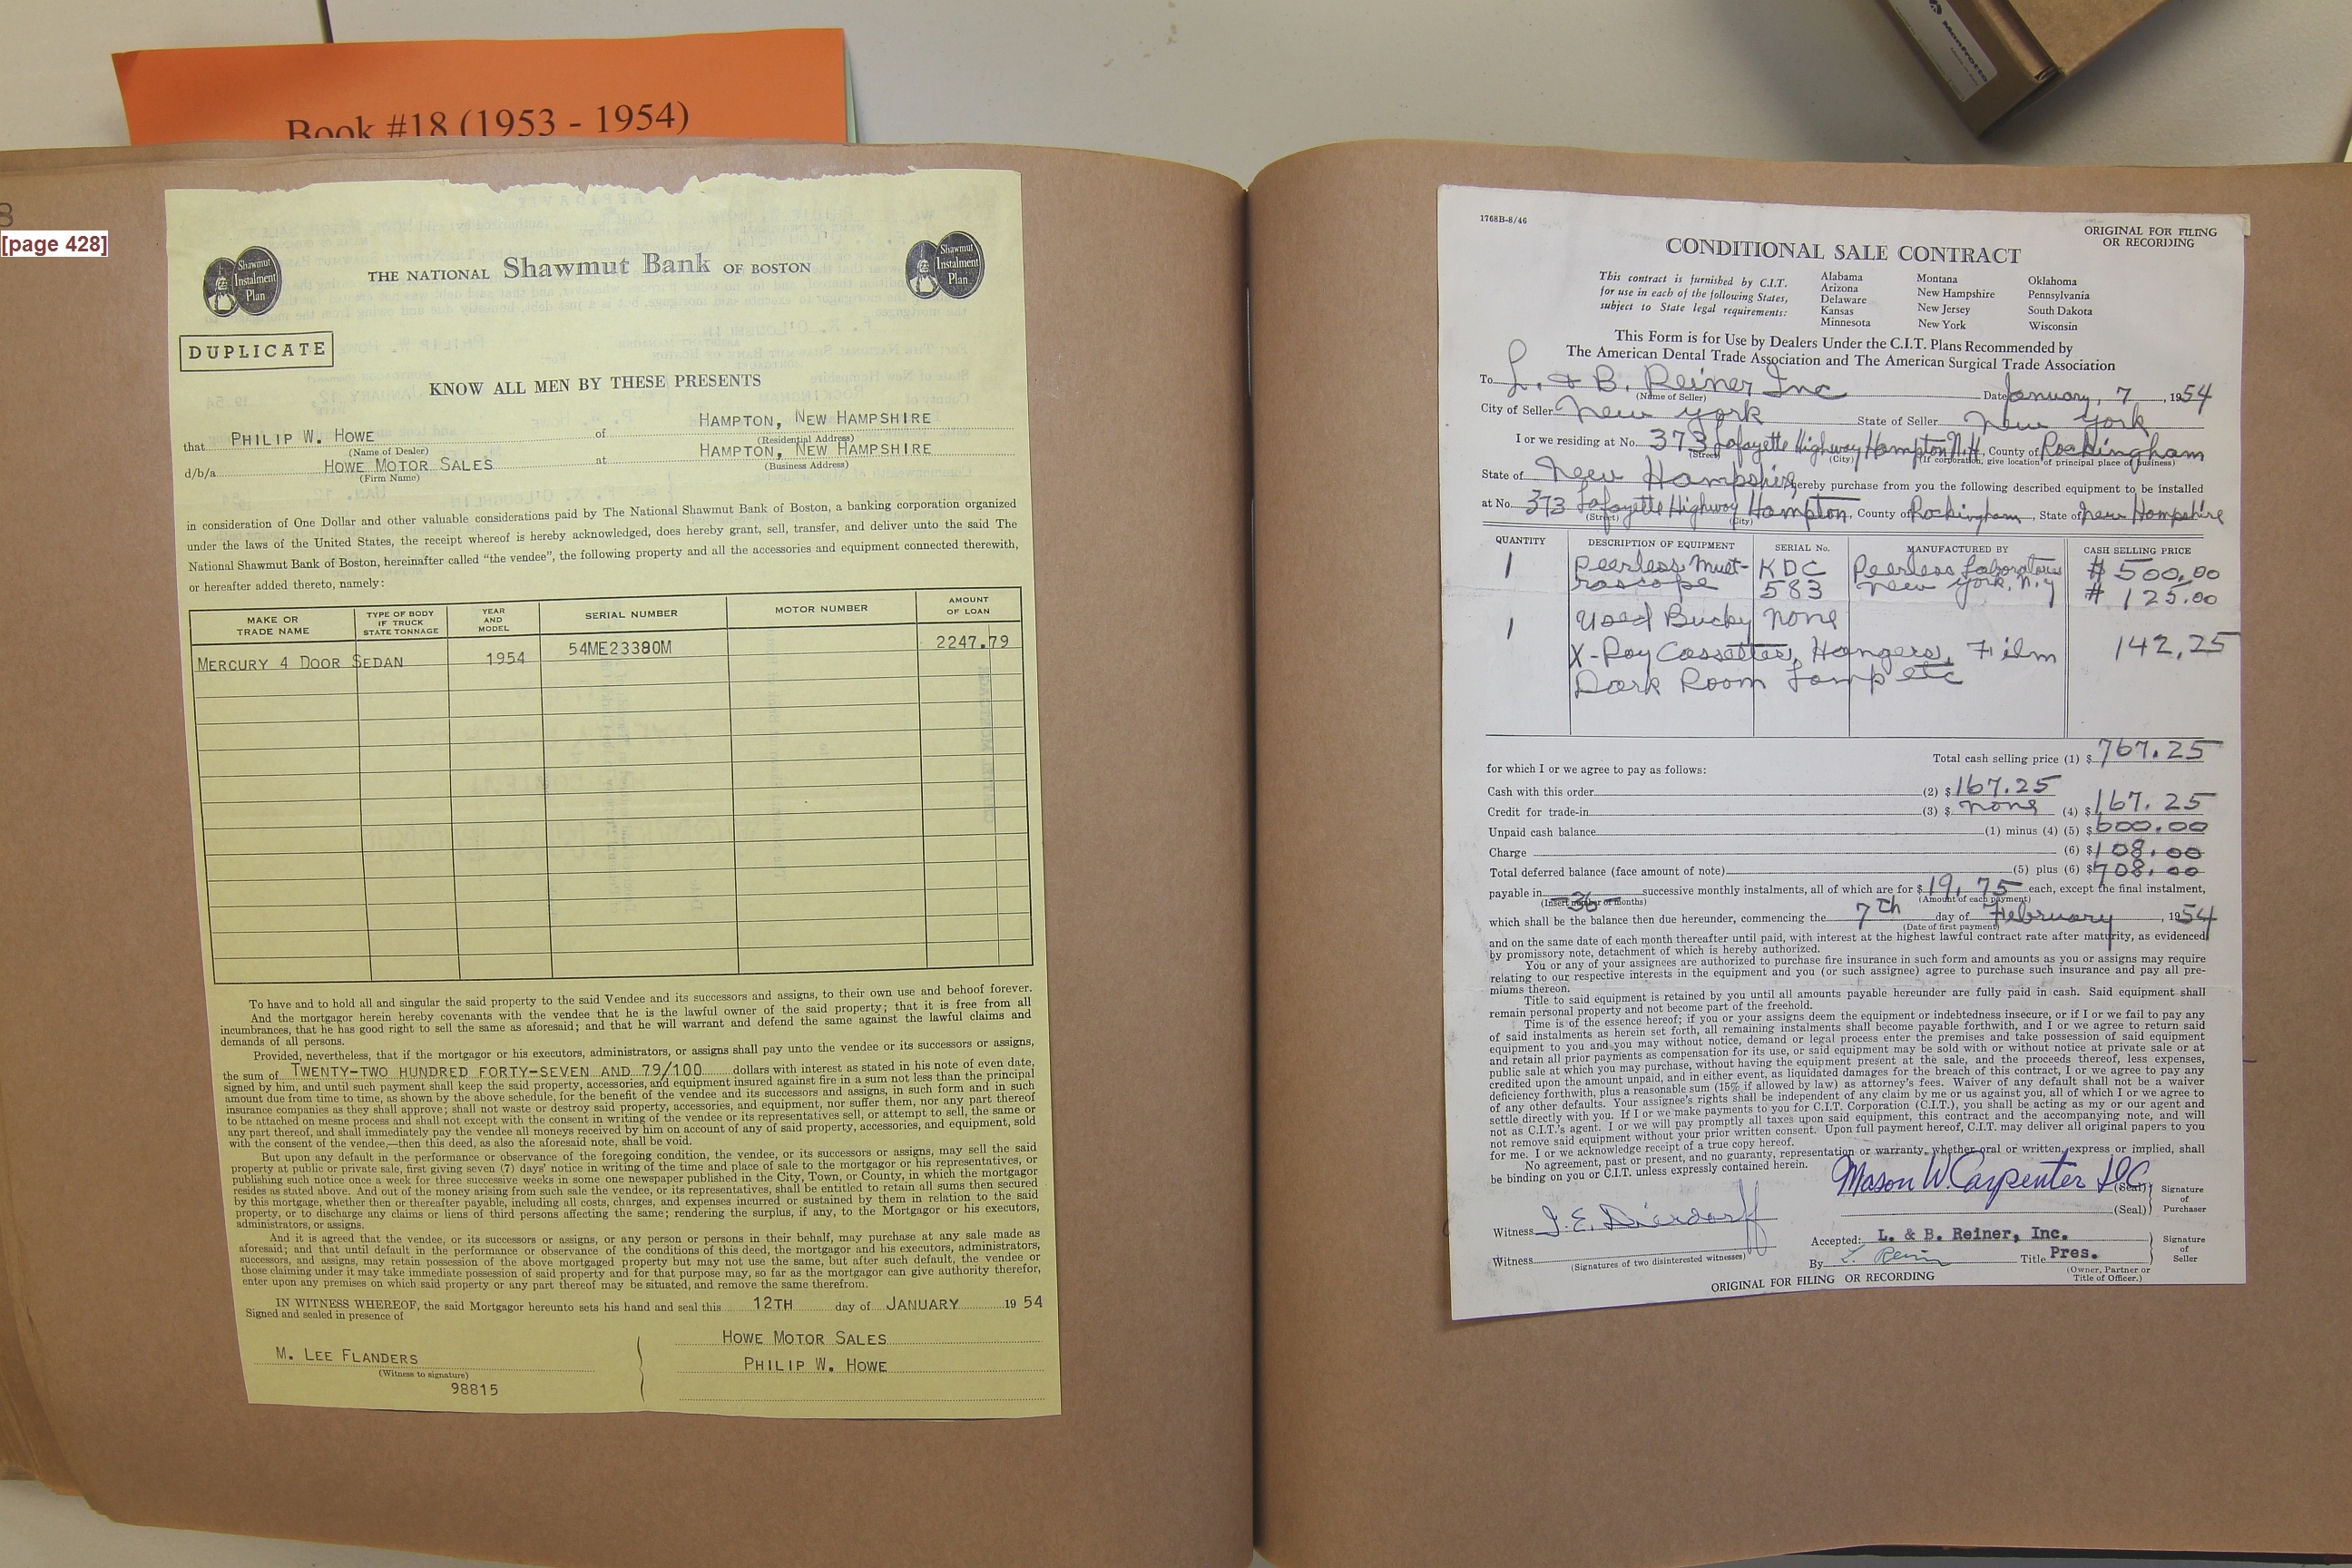 Book #18 (1953 - 1954)
[page 428]
Shawmut Instalment Plan
THE NATIONAL Shawmut Bank OF BOSTON
Shawmut Instalment Plan
DUPLICATE
KNOW ALL MEN BY THESE PRESENTS
that PHILIP W. HOWE of HAMPTON, NEW HAMPSHIRE
(Name of Dealer) (Residential Address)
d/b/a HOWE MOTOR SALES at HAMPTON, NEW HAMPSHIRE
(Firm Name) (Business Address)
in consideration of One Dollar and other valuable considerations paid by The National Shawmut Bank of Boston, a banking corporation organized
under the laws of the United States, the receipt whereof is hereby acknowledged, does hereby grant, sell, transfer, and deliver unto the said The
National Shawmut Bank of Boston, hereinafter called "the vendee", the following property and all the accessories and equipment connected therewith,
or hereafter added thereto, namely:
MAKE OR TRADE NAME TYPE OF BODY IF TRUCK STATE TONNAGE YEAR AND MODEL SERIAL NUMBER MOTOR NUMBER AMOUNT OF LOAN
MERCURY 4 DOOR SEDAN 1954 54ME23380M 2247.79
To have and to hold all and singular the said property to the said Vendee and its successors and assigns, to their own use and behoof forever.
And the mortgagor herein hereby covenants with the vendee that he is the lawful owner of the said property; that it is free from all
incumbrances, that he has good right to sell the same as aforesaid; and that he will warrant and defend the same against the lawful claims and
demands of all persons.
Provided, nevertheless, that if the mortgagor or his executors, administrators, or assigns shall pay unto the vendee or its successors or assigns,
the sum of TWENTY-TWO HUNDRED FORTY-SEVEN AND 79/100 dollars with interest as stated in his note of even date,
signed by him, and until such payment shall keep the said property, accessories, and equipment insured against fire in a sum not less than the principal
amount due from time to time, as shown by the above schedule, for the benefit of the vendee and its successors and assigns, in such form and in such
insurance companies as they shall approve; shall not waste or destroy said property, accessories, and equipment, nor suffer them, nor any part thereof
to be attached on mesne process and shall not except with the consent in writing of the vendee or its representatives sell, or attempt to sell, the same or
any part thereof, and shall immediately pay the vendee all moneys received by him on account of any of said property, accessories, and equipment, sold
with the consent of the vendee,—then this deed, as also the aforesaid note, shall be void.
But upon any default in the performance or observance of the foregoing condition, the vendee, or its successors or assigns, may sell the said
property at public or private sale, first giving seven (7) days' notice in writing of the time and place of sale to the mortgagor or his representatives, or
publishing such notice once a week for three successive weeks in some one newspaper published in the City, Town, or County, in which the mortgagor
resides as stated above. And out of the money arising from such sale the vendee, or its representatives, shall be entitled to retain all sums then secured
by this mortgage, whether then or thereafter payable, including all costs, charges, and expenses incurred or sustained by them in relation to the said
property, or to discharge any claims or liens of third persons affecting the same; rendering the surplus, if any, to the Mortgagor or his executors,
administrators, or assigns.
And it is agreed that the vendee, or its successors or assigns, or any person or persons in their behalf, may purchase at any sale made as
aforesaid; and that until default in the performance or observance of the conditions of this deed, the mortgagor and his executors, administrators,
successors, and assigns, may retain possession of the above mortgaged property but may not use the same, but after such default, the vendee or
those claiming under it may take immediate possession of said property and for that purpose may, so far as the mortgagor can give authority therefor,
enter upon any premises on which said property or any part thereof may be situated, and remove the same therefrom.
IN WITNESS WHEREOF, the said Mortgagor hereunto sets his hand and seal this 12TH day of JANUARY 19 54
Signed and sealed in presence of
HOWE MOTOR SALES
M. LEE FLANDERS PHILIP W. HOWE
(Witness to signature)
98815
1768B-8/46
ORIGINAL FOR FILING
OR RECORDING
CONDITIONAL SALE CONTRACT
This contract is furnished by C.I.T. for use in each of the following States, subject to State legal requirements:
Alabama Montana Oklahoma
Arizona New Hampshire Pennsylvania
Delaware New Jersey South Dakota
Kansas New York Wisconsin
Minnesota
This Form is for Use by Dealers Under the C.I.T. Plans Recommended by
The American Dental Trade Association and The American Surgical Trade Association
To L. & B. Reiner Inc Date January, 7, 1954
(Name of Seller)
City of Seller New York State of Seller New York
I or we residing at No. 373 Lafayette Highway Hampton N.H., County of Rockingham
(Street) (City) (If corporation, give location of principal place of business)
State of New Hampshire, hereby purchase from you the following described equipment to be installed
at No. 373 Lafayette Highway Hampton, County of Rockingham, State of New Hampshire
(Street) (City)
QUANTITY DESCRIPTION OF EQUIPMENT SERIAL No. MANUFACTURED BY CASH SELLING PRICE
1 Peerless KDC Peerless Laboratories $500.00
583 New York, N.Y $125.00
1 Used Bucky None
X-Ray Cassettes, Hangers, Film 142.25
Dark Room Lamp etc
Total cash selling price (1) $ 767.25
for which I or we agree to pay as follows:
Cash with this order (2) $ 167.25
Credit for trade-in (3) $ none (4) $ 167.25
Unpaid cash balance (1) minus (4) (5) $ 600.00
Charge (6) $ 108.00
Total deferred balance (face amount of note) (5) plus (6) $ 708.00
payable in 36 successive monthly instalments, all of which are for $ 19.75 each, except the final instalment,
(Insert number of months) (Amount of each payment)
which shall be the balance then due hereunder, commencing the 7th day of February, 1954
(Date of first payment)
and on the same date of each month thereafter until paid, with interest at the highest lawful contract rate after maturity, as evidenced
by promissory note, detachment of which is hereby authorized.
You or any of your assignees are authorized to purchase fire insurance in such form and amounts as you or assigns may require
relating to our respective interests in the equipment and you (or such assignee) agree to purchase such insurance and pay all pre-
miums thereon.
Title to said equipment is retained by you until all amounts payable hereunder are fully paid in cash. Said equipment shall
remain personal property and not become part of the freehold.
Time is of the essence hereof; if you or your assigns deem the equipment or indebtedness insecure, or if I or we fail to pay any
of said instalments as herein set forth, all remaining instalments shall become payable forthwith, and I or we agree to return said
equipment to you and you may without notice, demand or legal process enter the premises and take possession of said equipment
and retain all prior payments as compensation for its use, or said equipment may be sold with or without notice at private sale or at
public sale at which you may purchase, without having the equipment present at the sale, and the proceeds thereof, less expenses,
credited upon the amount unpaid, and in either event, as liquidated damages for the breach of this contract, I or we agree to pay any
deficiency forthwith, plus a reasonable sum (15% if allowed by law) as attorney's fees. Waiver of any default shall not be a waiver
of any other defaults. Your assignee's rights shall be independent of any claim by me or us against you, all of which I or we agree to
settle directly with you. If I or we make payments to you for C.I.T. Corporation (C.I.T.), you shall be acting as my or our agent and
not as C.I.T.'s agent. I or we will pay promptly all taxes upon said equipment, this contract and the accompanying note, and will
not remove said equipment without your prior written consent. Upon full payment hereof, C.I.T. may deliver all original papers to you
for me. I or we acknowledge receipt of a true copy hereof.
No agreement, past or present, and no guaranty, representation or warranty, whether oral or written, express or implied, shall
be binding on you or C.I.T. unless expressly contained herein.
Mason W. Carpenter D.C. (Seal) Signature of Purchaser
(Seal)
Witness J. E. Dierdorff
Accepted: L. & B. Reiner, Inc. Signature of Seller
Witness By L. Reiner Title Pres.
(Signatures of two disinterested witnesses) (Owner, Partner or Title of Officer.)
ORIGINAL FOR FILING OR RECORDING
Manfrotto